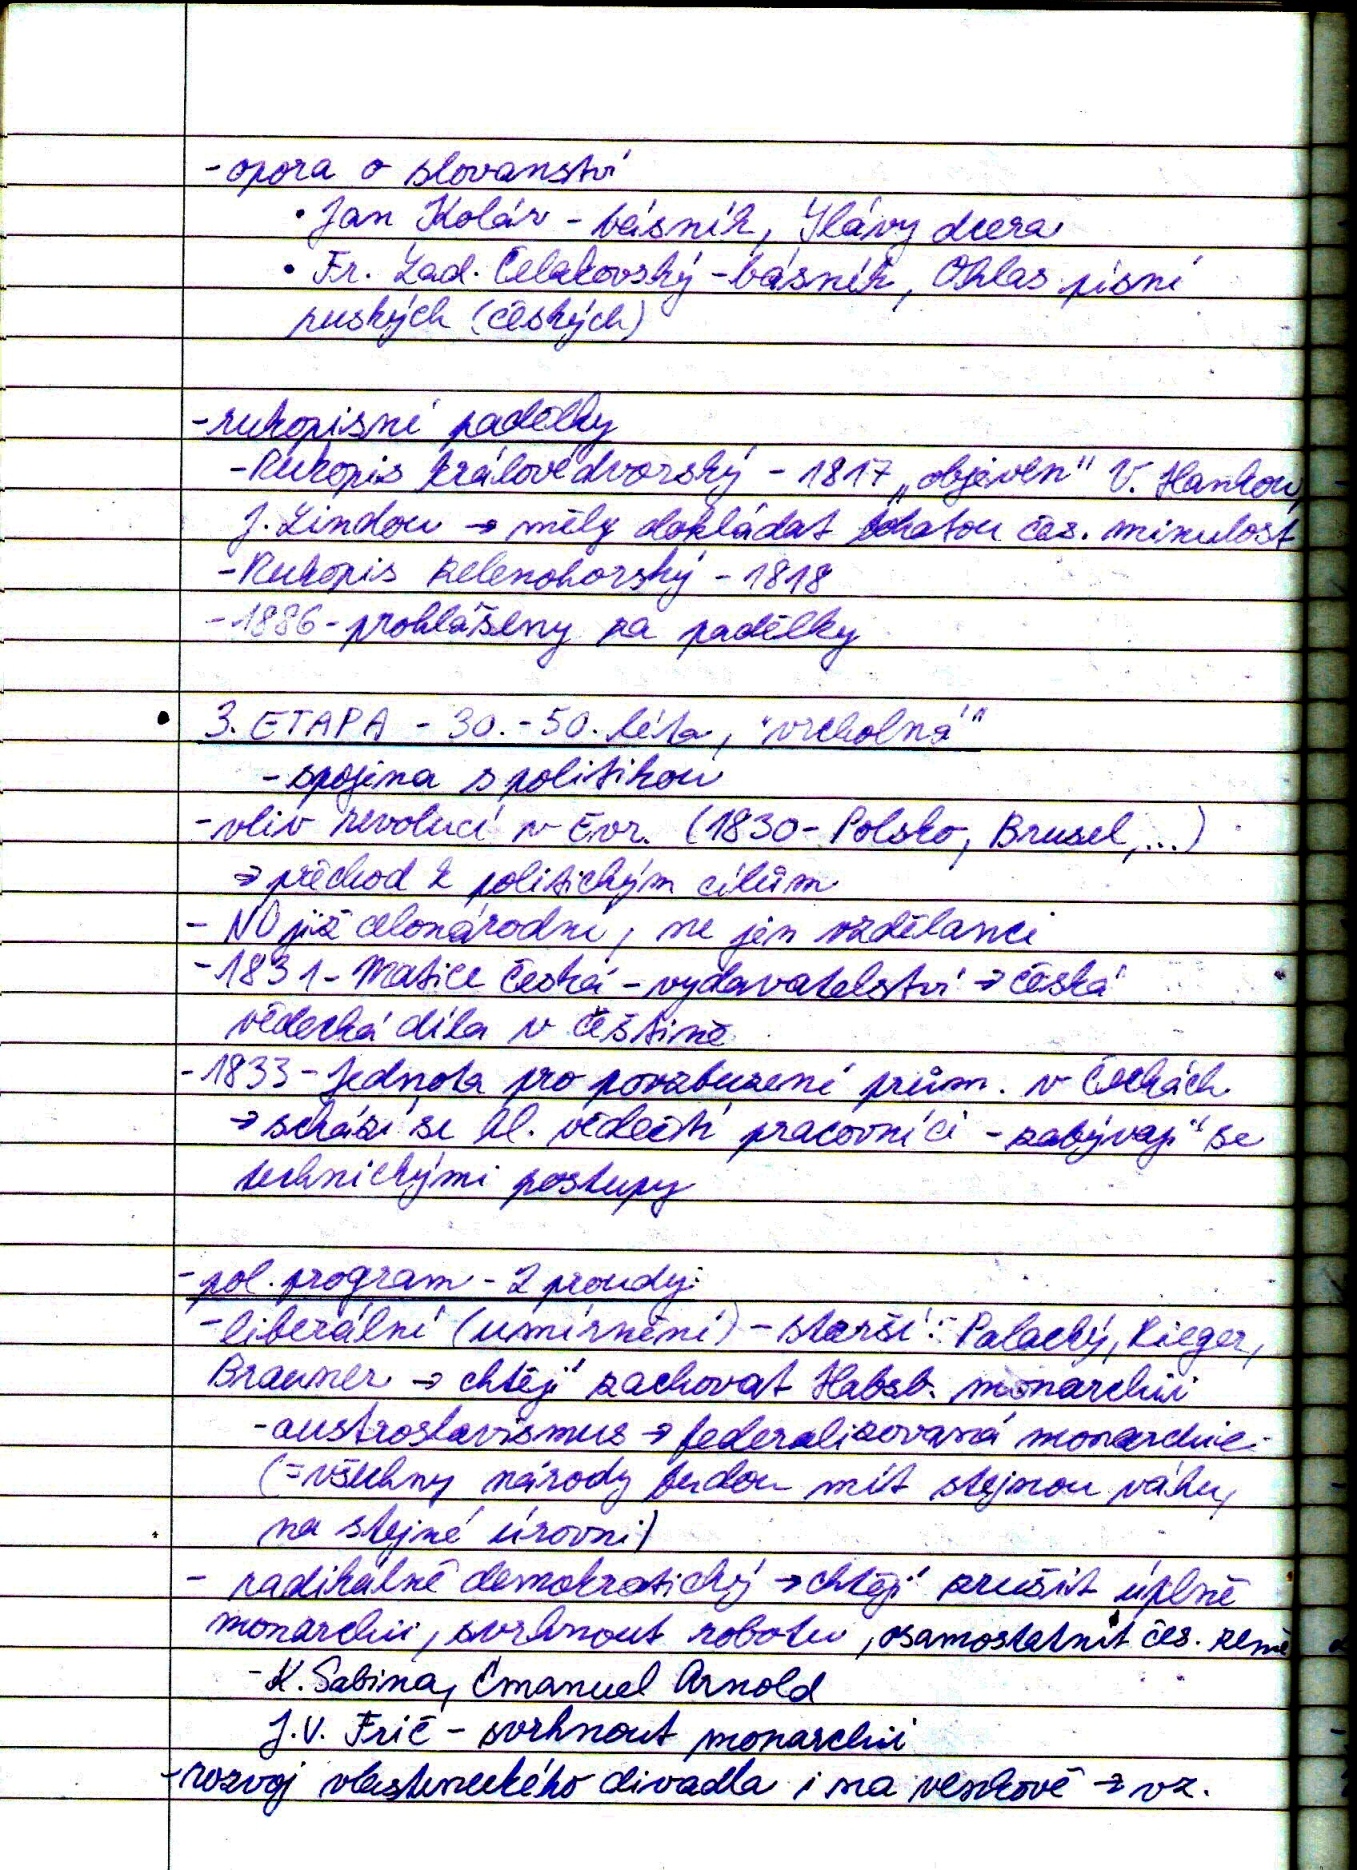 - opora o slovanství
• Jan Kolár - básník, Slávy dcera
• Fr. Lad. Čelakovský - básník, Ohlas písní
ruských (českých)
- rukopisné padělky
- Rukopis královédvorský - 1817 „objeven" V. Hankou,
J. Lindou → měly dokládat bohatou čes. minulost
- Rukopis zelenohorský - 1818
- 1886 - prohlášeny za padělky
• 3. ETAPA - 30. - 50. léta, "vrcholná"
- spojena s politikou
- vliv revolucí v Evr. (1830 - Polsko, Brusel, ...)
→ přechod k politickým cílům
- NO již celonárodní, ne jen vzdělanci
- 1831 - Matice česká - vydavatelství → česká
vědecká díla v češtině
- 1833 - Jednota pro povzbuzení prům. v Čechách
→ schází se hl. vědečtí pracovníci - zabývají se
technickými postupy
- pol. program - 2 proudy:
- liberální (umírnění) - starší: Palacký, Rieger,
Brauner → chtějí zachovat Habsb. monarchii
- austroslavismus → federalizovaná monarchie
(= všechny národy budou mít stejnou váhu,
na stejné úrovni)
- radikálně demokratický → chtějí zrušit úplně
monarchii, svrhnout robotu, osamostatnit čes. země
- K. Sabina, Emanuel Arnold
J. V. Frič - svrhnout monarchii
- rozvoj vlasteneckého divadla i na venkově → vz.